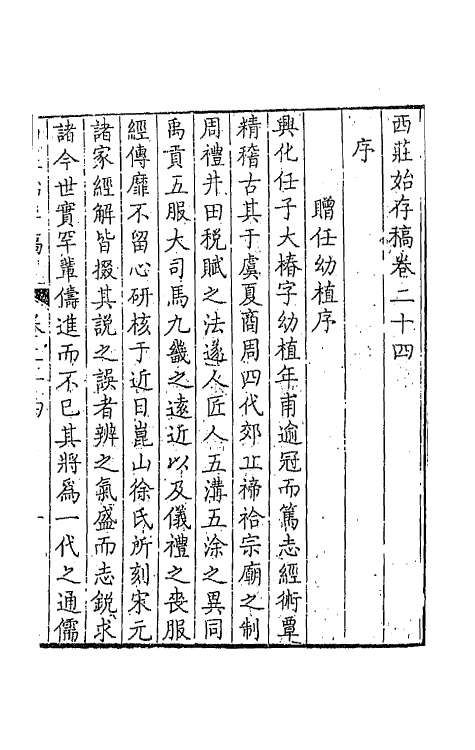 西莊始存稿卷二十四
序
贈任幼植序
興化任子大椿字幼植年甫逾冠而篤志經術覃
精稽古其于虞夏商周四代郊丘禘祫宗廟之制
周禮井田稅賦之法遂人匠人五溝五涂之異同
禹貢五服大司馬九畿之遠近以及儀禮之喪服
經傳靡不留心研核于近日崑山徐氏所刻宋元
諸家經解皆掇其說之誤者辨之氣盛而志銳求
諸今世實罕輩儔進而不已其將爲一代之通儒